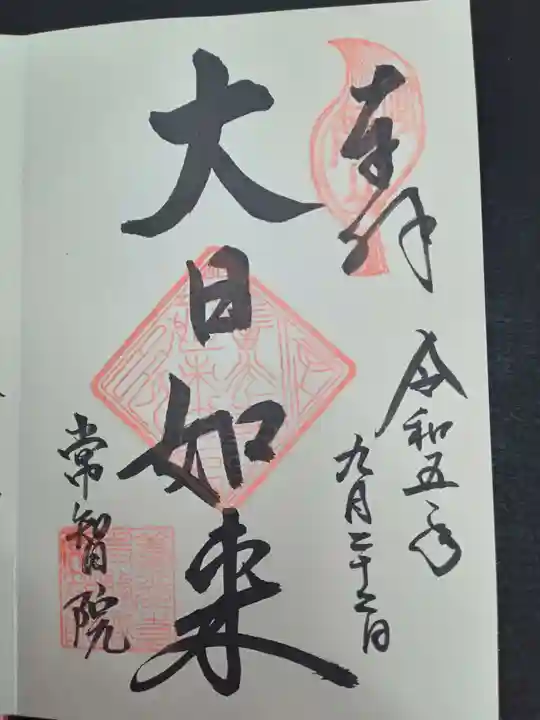 奉拝
令和五年
九月二十二日
大日如来
常智院